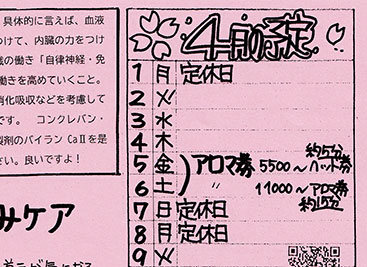 具体的に言えば、血液
つけて、内臓の力をつけ
臓の働き「自律神経・免
働きを高めていくこと。
消化吸収などを考慮して
です。 コンクレバン・
製剤のバイラン CaⅡを是
さい。良いですよ！
みケア
4月の予定
1 月 定休日
2 火
3 水
4 木
5 金 アロマ券 5500～ハンド券 約5分
6 土 〃 11000～アロマ券 約15分
7 日 定休日
8 月 定休日
9 火